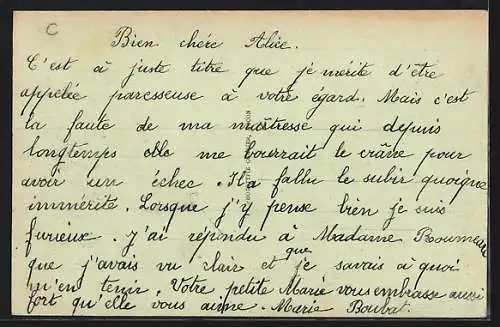 C
Bien chère Alice.
C'est à juste titre que je mérite d'être
appelée paresseuse à votre égard. Mais c'est
la faute de ma maîtresse qui depuis
longtemps me bourrait le crâne pour
avoir un échec. Il a fallu le subir quoique
immérité. Lorsque j'y pense bien je suis
furieux. J'ai répondu à Madame
que j'avais vu clair et que je savais à quoi
m'en tenir. Votre petite Marie vous embrasse aussi
fort qu'elle vous aime. Marie Boubat.